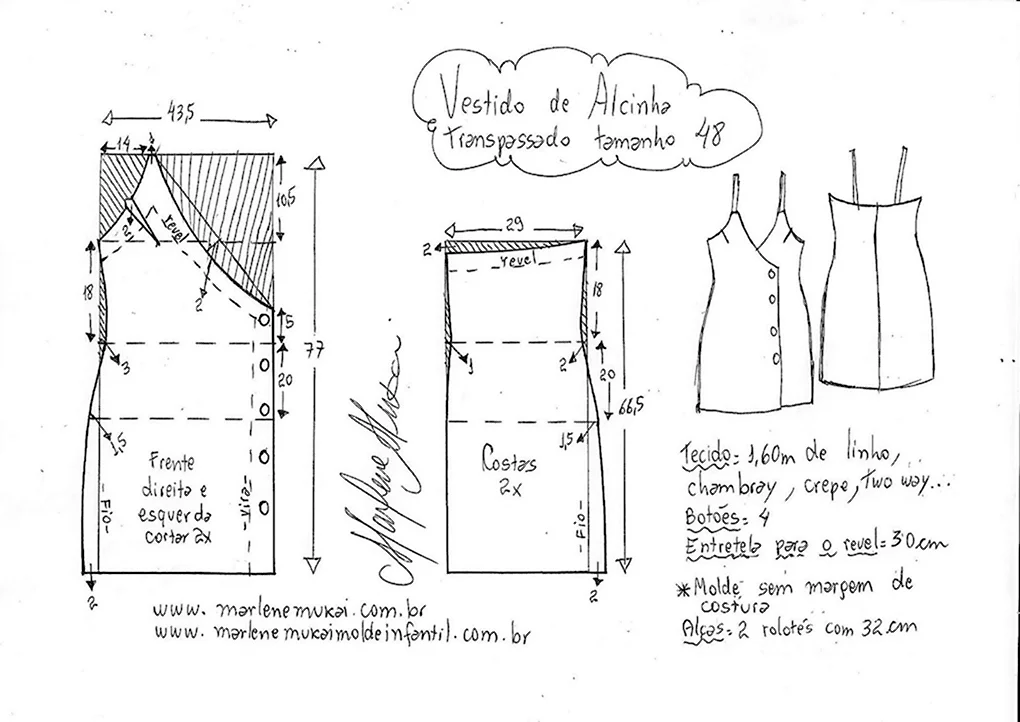 Vestido de Alcinha
transpassado tamanho 48
43,5
14
1
10,5
revel
2
2
18
5
77
3
20
1,5
Frente
direita e
esquerda
cortar 2x
Fio
vira
2
29
2
revel
18
1
2
20
66,5
1,5
Costas
2x
Fio
2
Marlene Mukai
Tecido= 1,60m de linho,
chambray, crepe, Two way...
Botões= 4
Entretela para o revel= 30cm
*Molde sem margem de
costura
Alças= 2 rolotês com 32cm
www.marlenemukai.com.br
www.marlenemukaimoldeinfantil.com.br